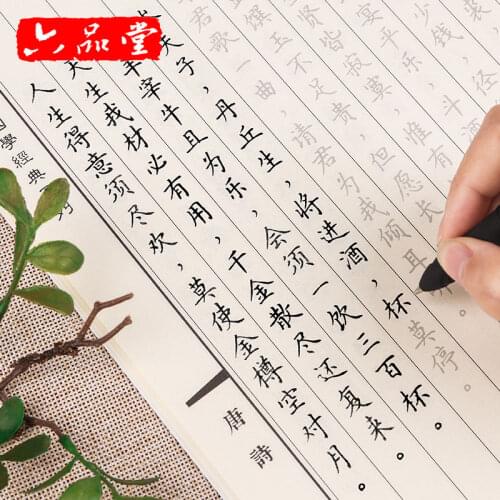 六品堂
學經典
唐詩
人生得意须尽欢，莫使金樽空对月。
天生我材必有用，千金散尽还复来。
羊宰牛且为乐，会须一饮三百杯。
夫子，丹丘生，将进酒，杯莫停。
君歌一曲，请君为我倾耳
馔玉不足贵，但愿长
贤皆寂寞，惟有
宴平乐，斗
少钱，径